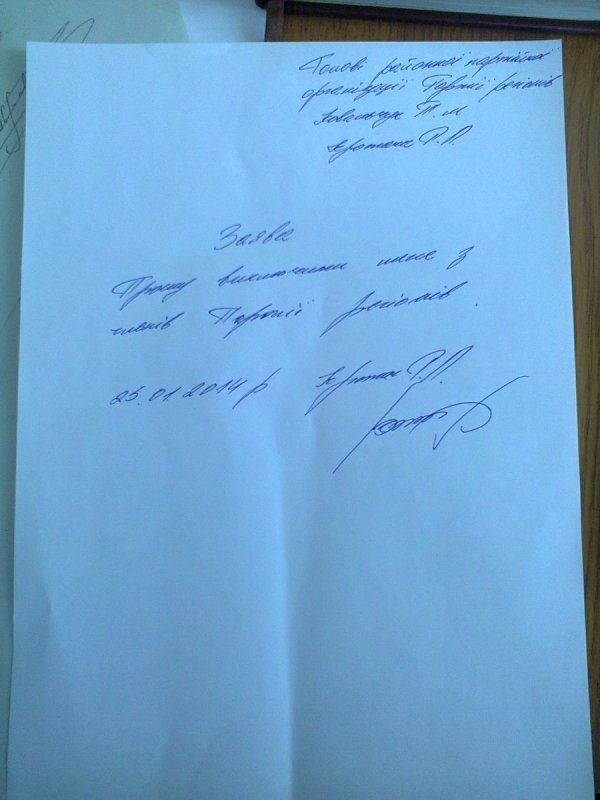 Голові районної партійної
організації Партії регіонів
Ковальчук Т. М
Кротюка Р. П.
Заява
Прошу виключити мене з
членів Партії регіонів.
25.01.2014 р Кротюк Р. П.